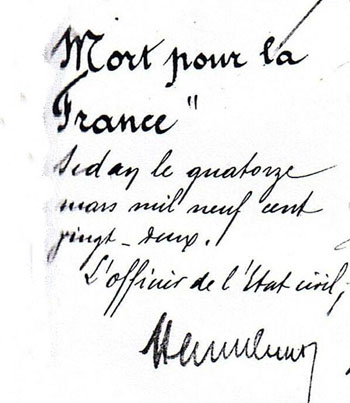 Mort pour la
France"
Sedan le quatorze
mars mil neuf cent
vingt-deux.
L'officier de l'Etat civil,